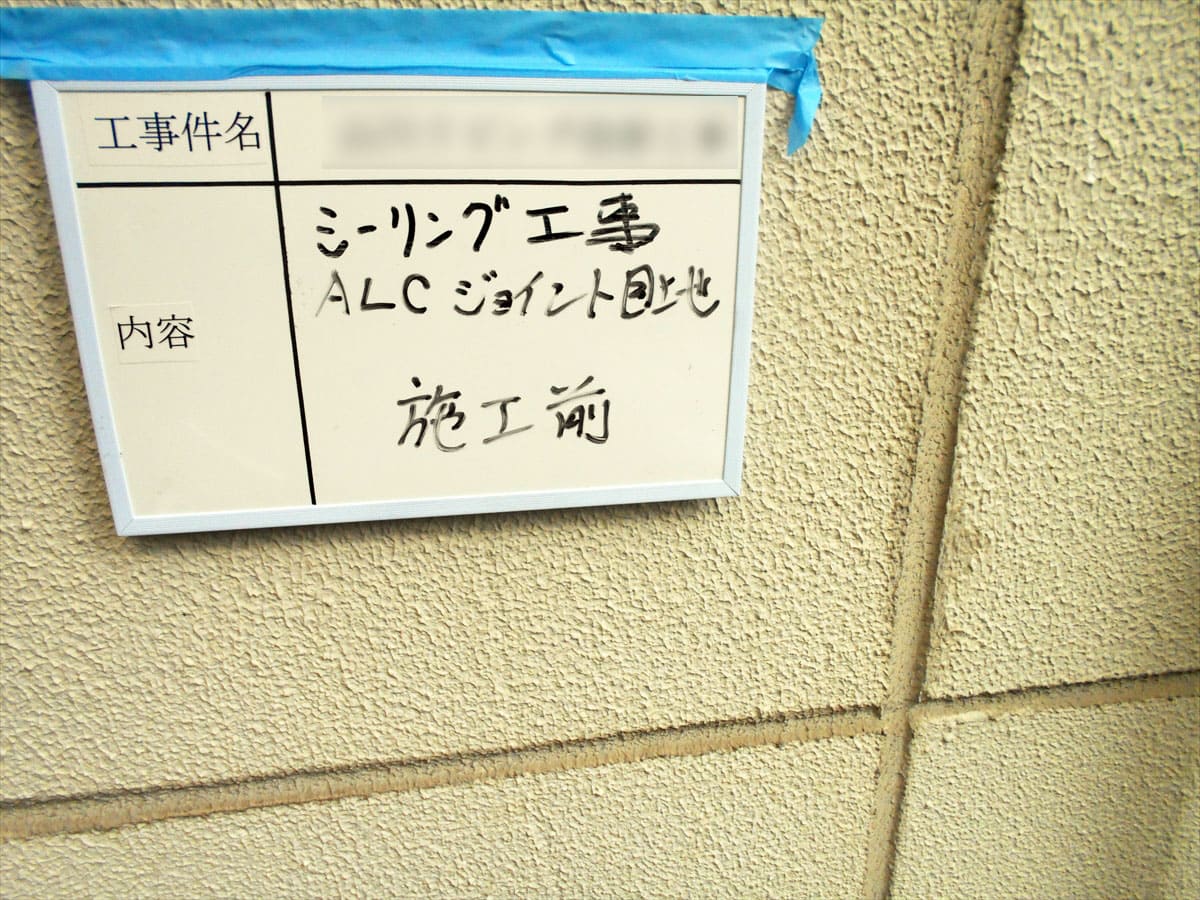 工事件名
シーリング工事
ALC ジョイント目地
内容
施工前